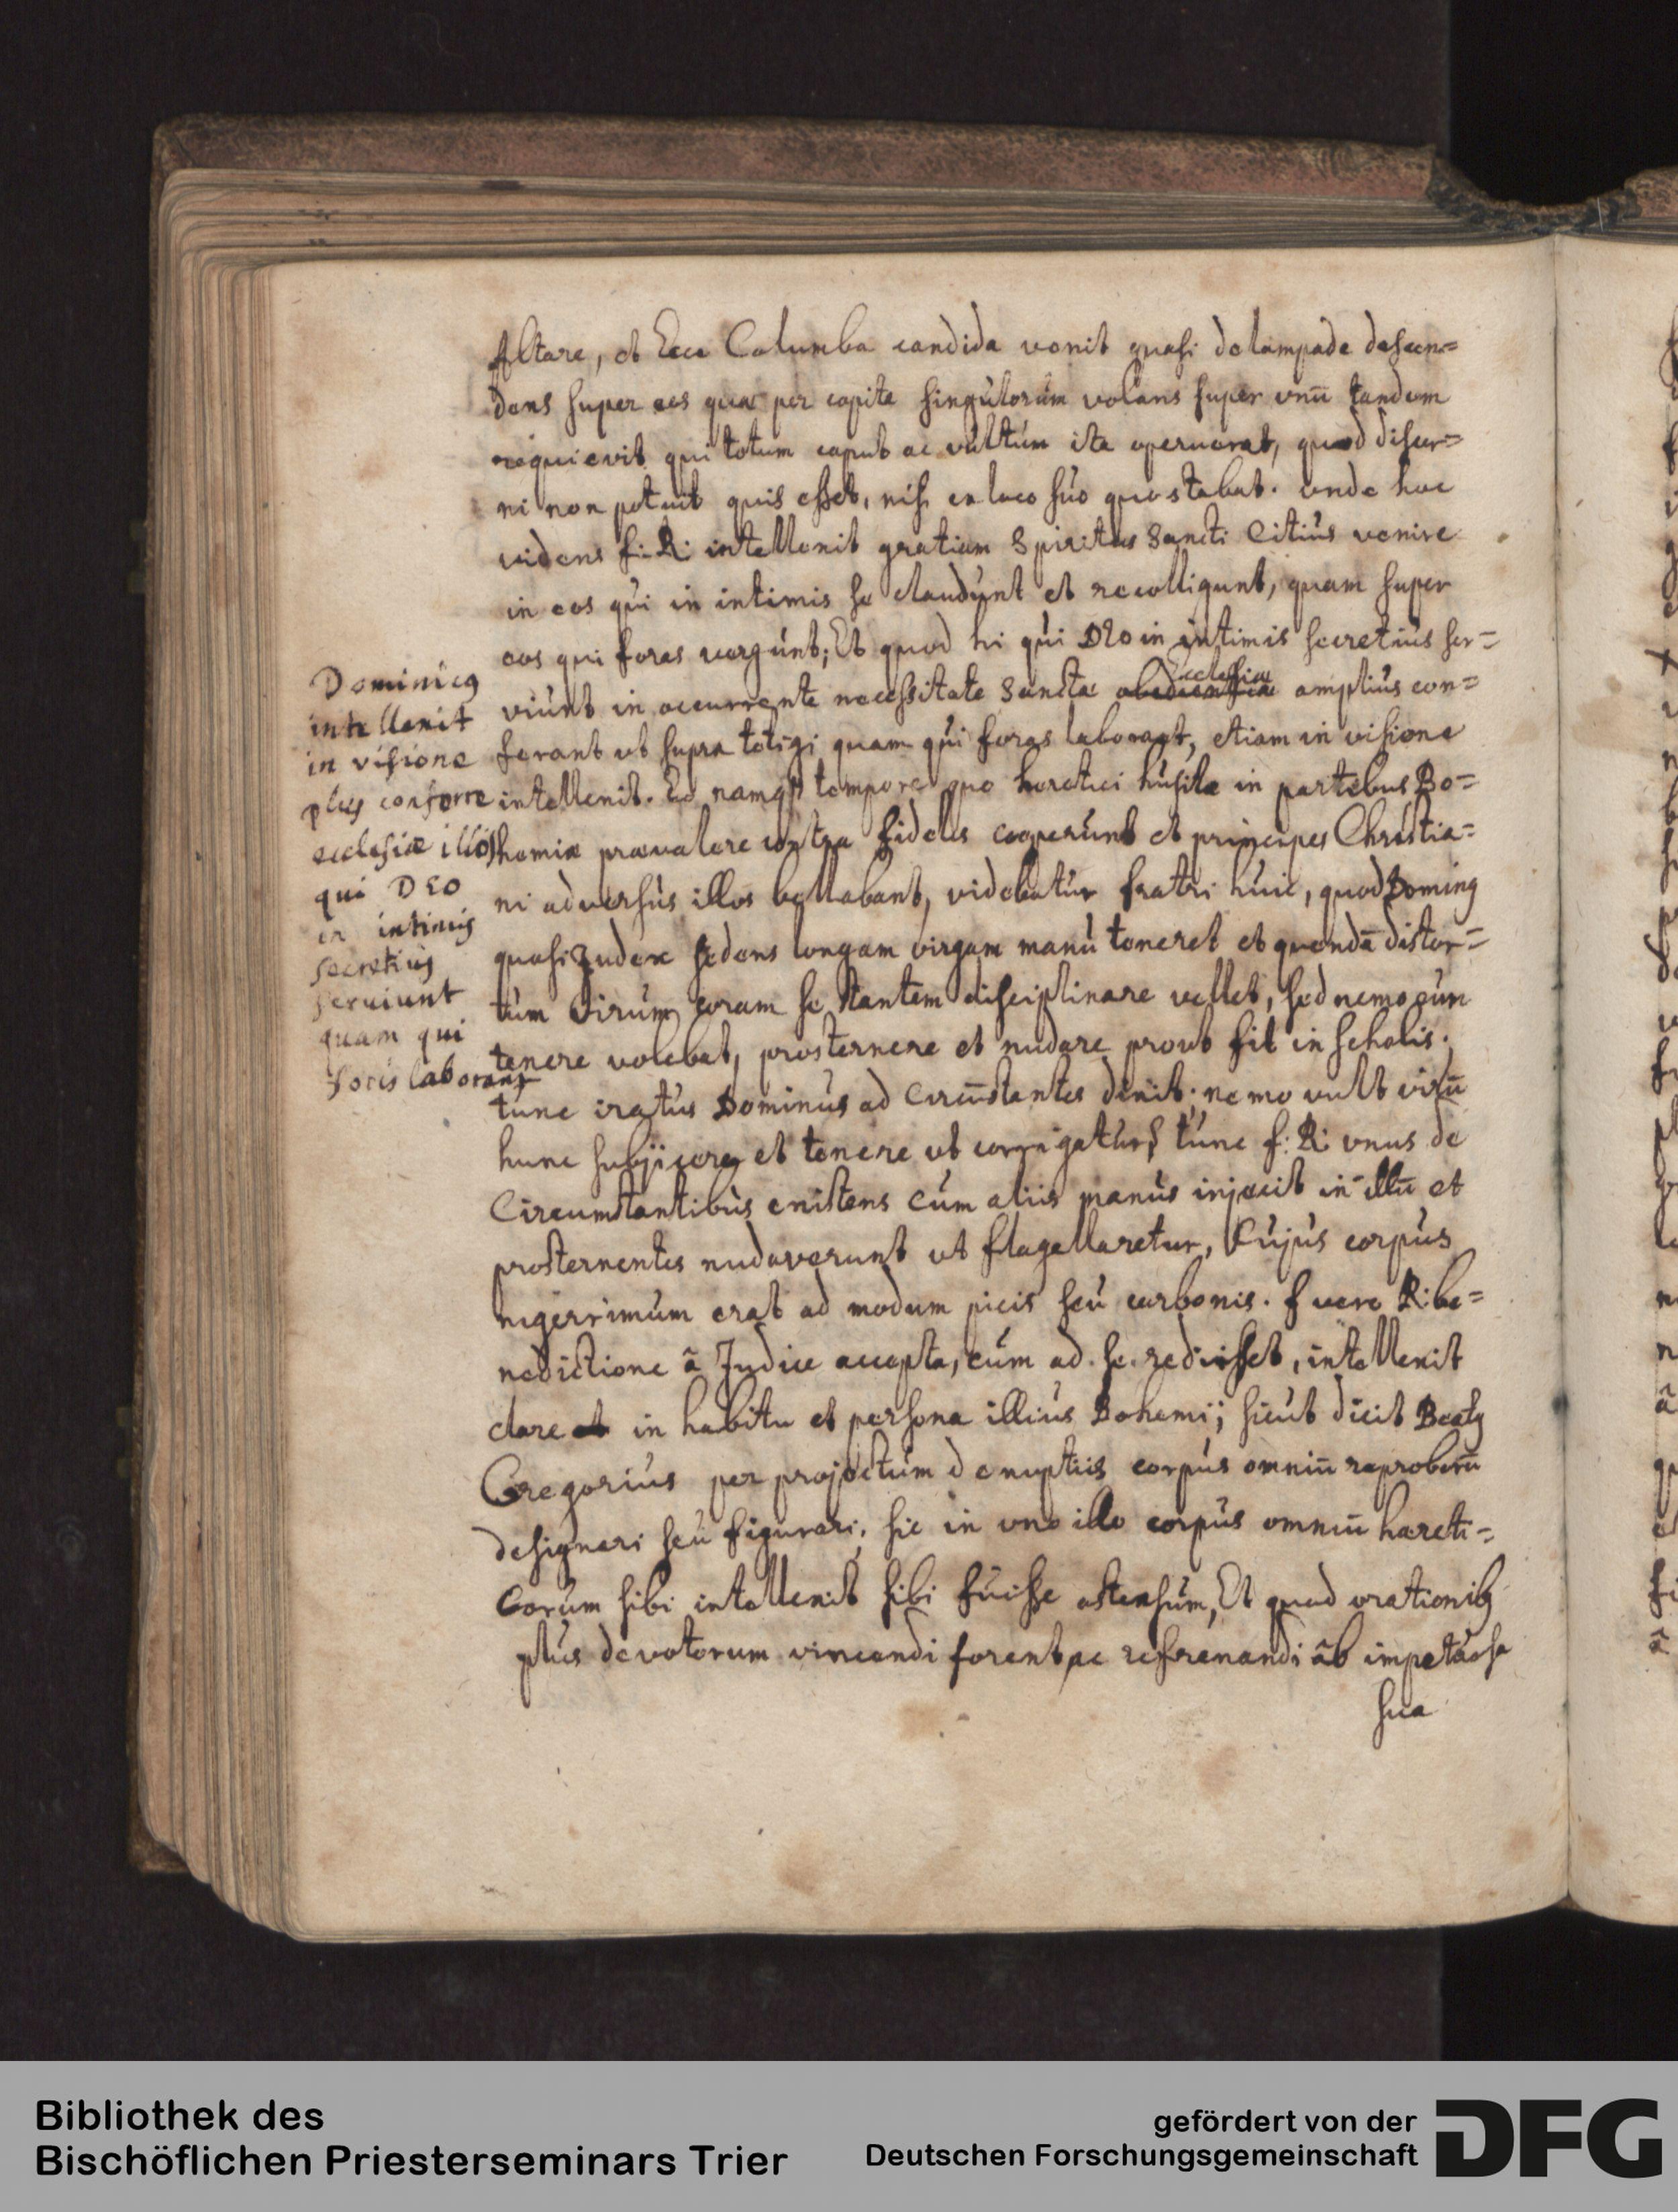 Altare, et Ecce Columba candida venit quasi de lampade descen=
dens super eos quae per capita singulorum volans super vnū tandem
requievit qui totum caput ac vultum ita operuerat, quod discer=
ni non potuit quis esset, nisi ex loco suo quo stabat. vnde hoc
videns f: R: intellexit gratiam Spiritus Sancti Citius venire
in eos qui in intimis se claudunt et recolligunt, quam super
eos qui foras vergunt; Et quod hi qui DEO in intimis secretius ser=
viunt in occurrente necessitate Sanctae obedientiae Ecclesiae amplius con=
ferant ut supra tetigi quam qui foras laborant, etiam in visione
intellexit. Eo namq; tempore quo haeretici husitae in partibus Bo=
hemiae praevalere contra fideles coeperunt et principes Christia=
ni adversus illos bellabant, videbatur fratri huic, quod Doming
quasi Judex sedens longam virgam manu teneret et quendā distor=
tum Virum coram se stantem disciplinare vellet, sed nemo eum
tenere volebat, prosternere et nudare prout fit in scholis.
tunc iratus Dominus ad Circūstantes dixit: nemo vult virū
hunc subjicere et tenere ut corrigatur? tunc f: R: vnus de
Circumstantibus existens cum aliis manus injecit in illū et
prosternentes nudaverunt ut flagellaretur, Cujus corpus
nigerrimum erat ad modum picis seu carbonis. f vero R: be=
nedictione â Judice accepta, cum ad se redisset, intellexit
clare et in habitu et persona illius Bohemi; sicut dicit Beatg
Gregorius per projectum de nuptiis corpus omniū reproborū
designari seu figurari, sic in vno illo corpus omniū haereti=
corum sibi intellexit sibi fuisse ostensum, Et quod orationibg
plus devotorum vincendi forent ac refrenandi âb impetuosa
sua
Dominicg
intellexit
in visione
plus conferre
ecclesiae illos
qui DEO
in intimis
secretius
serviunt
quam qui
foris laborant
Bibliothek des
Bischöflichen Priesterseminars Trier
gefördert von der
Deutschen Forschungsgemeinschaft
DFG